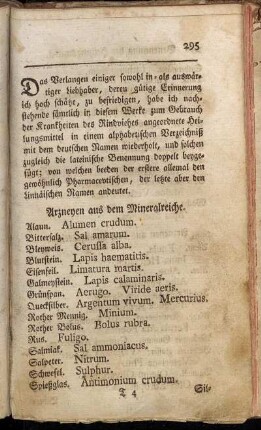 295
Das Verlangen einiger sowohl in- als auswär-
tiger Liebhaber, deren gütige Erinnerung
ich hoch schätze, zu befriedigen, habe ich nach-
stehende sämmtlich in diesem Werke zum Gebrauch
der Krankheiten des Rindviehes angeordnete Hei-
lungsmittel in einem alphabetischen Verzeichniß
mit dem deutschen Namen wiederholt, und solchen
zugleich die lateinische Benennung doppelt beyge-
fügt; von welchen beyden der erstere allemal den
gewöhnlich Pharmacevtischen, der letzte aber den
Linnäischen Namen andeutet.
Arzneyen aus dem Mineralreiche.
Alaun. Alumen crudum.
Bittersalz. Sal amarum.
Bleyweis. Cerussa alba.
Blutstein. Lapis haematitis.
Eisenfeil. Limatura martis.
Galmeystein. Lapis calaminaris.
Grünspan. Aerugo. Viride aeris.
Quecksilber. Argentum vivum. Mercurius.
Rother Mennig. Minium.
Rother Bolus. Bolus rubra.
Rus. Fuligo.
Salmiak. Sal ammoniacus.
Salpeter. Nitrum.
Schwefel. Sulphur.
Spießglas. Antimonium crudum.
T 4 Sil-